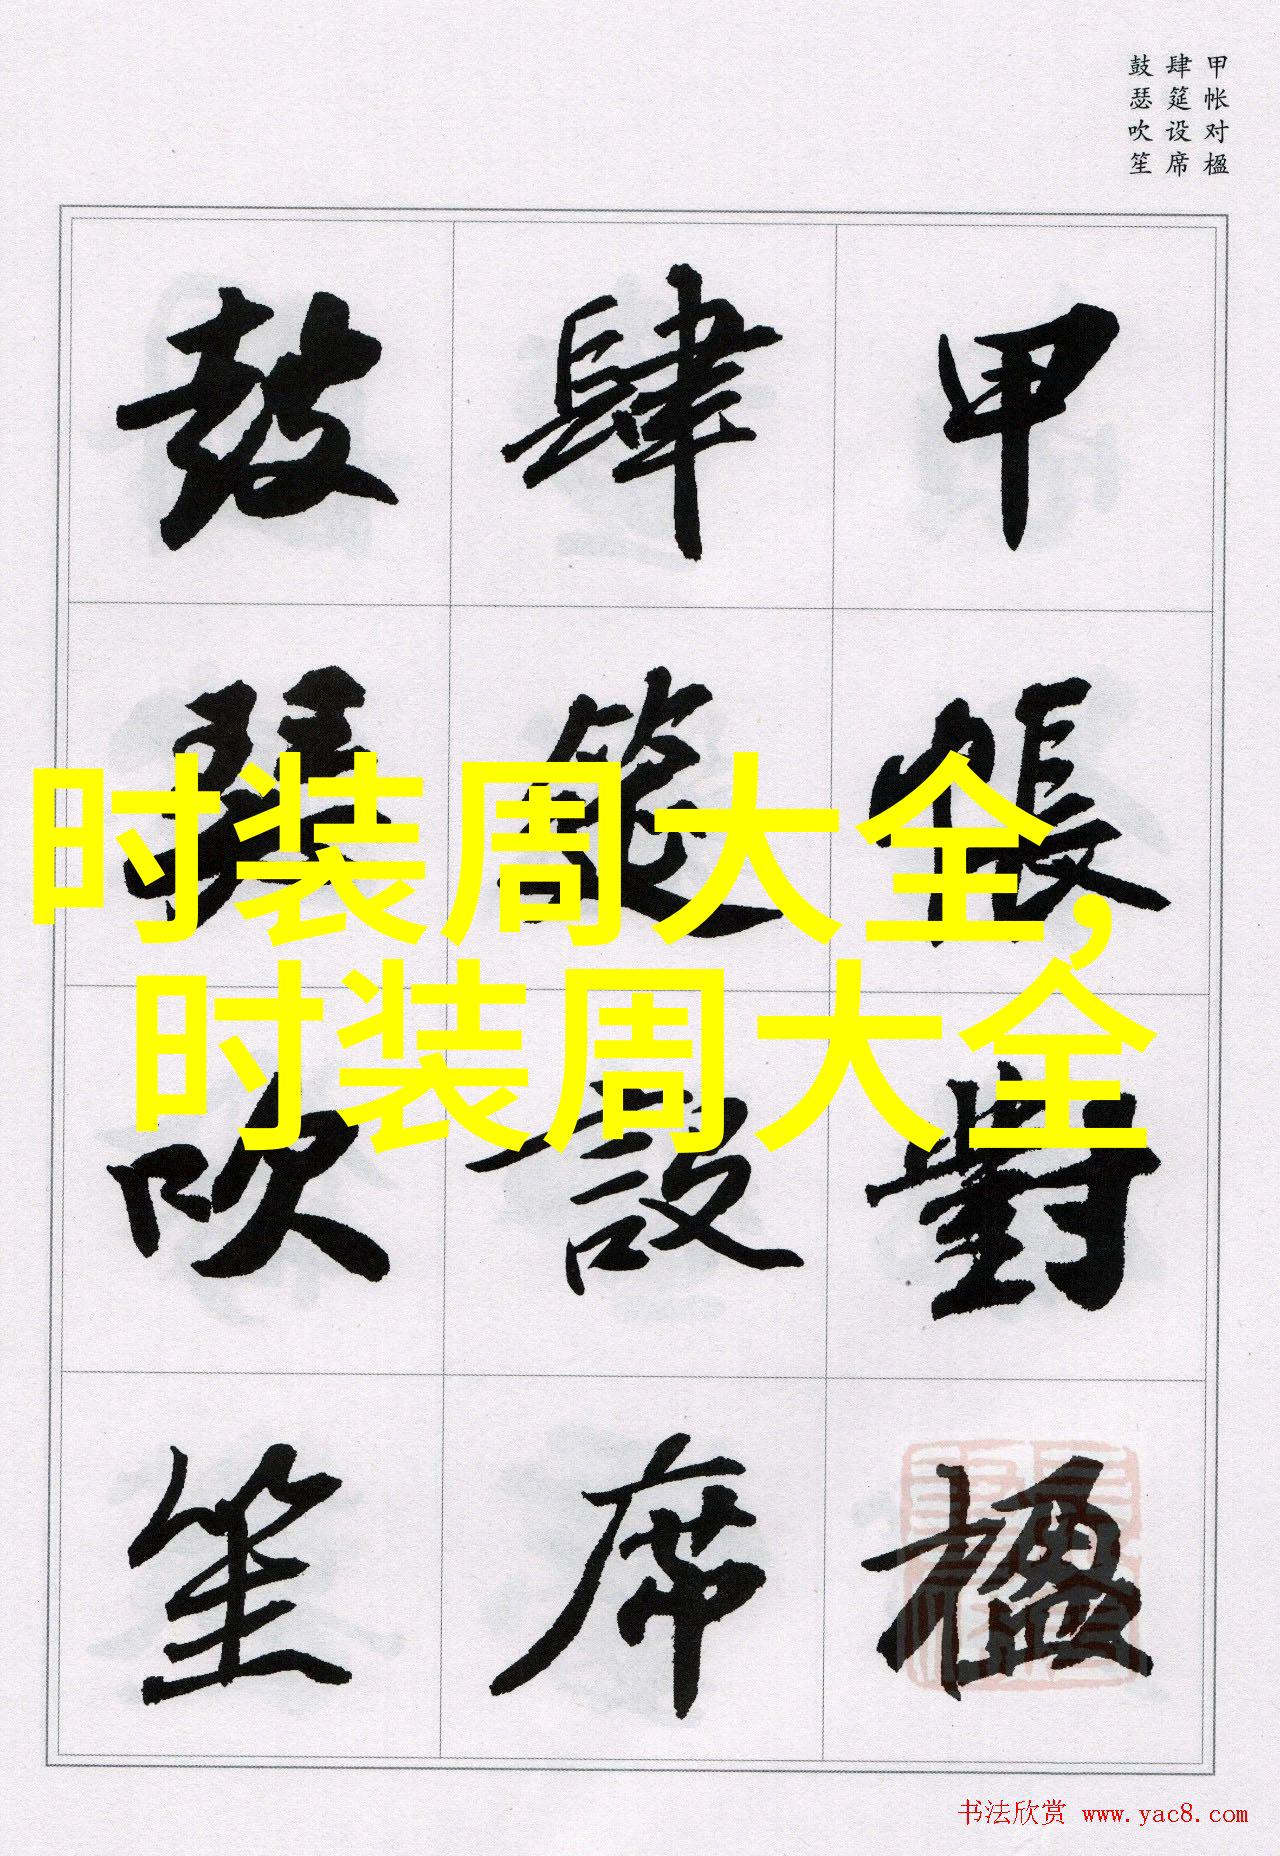 甲帐对楹
肆筵设席
鼓瑟吹笙
甲帳對楹
肆筵設席
鼓瑟吹笙
时装周大全，
时装周大全
书法欣赏 www.yac8.com